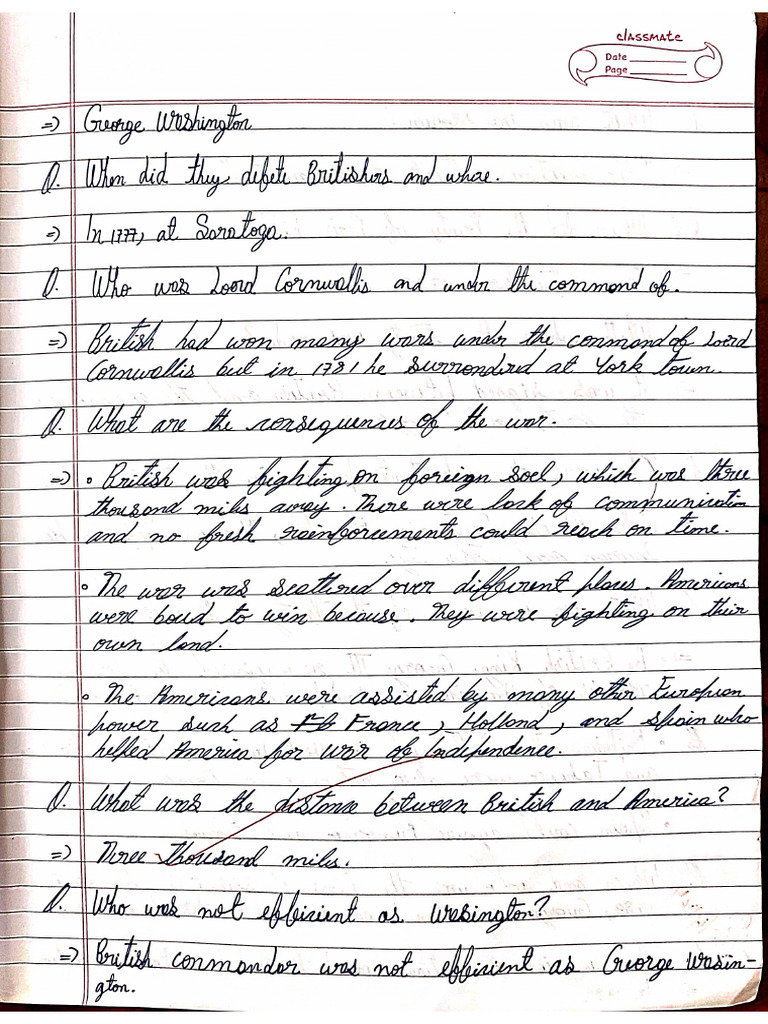 classmate
Date
Page
=) George Washington
Q. When did they defete Britishers and whare.
=) In 1777, at Saratoga.
Q. Who was Loord Cornwallis and undr the command of.
=) British had won many wars undr the command of Loord
Cornwallis but in 1781 he surrondrd at York town.
Q. What are the consequences of the war.
=) • British was fighting on foreign soel, which was three
thousand mils away. There were lack of communication
and no fresh reinforcements could reach on time.
• The war was scattred over different places. Americans
were boud to win because. They were fighting on their
own land.
• The Americans were assisted by many other European
power such as France, Holland, and spain who
helped America for war of Independence.
Q. What was the distance between British and America?
=) Three thousand miles.
Q. Who was not efficient as Wasington?
=) British commandar was not efficient as George Wasin-
gton.